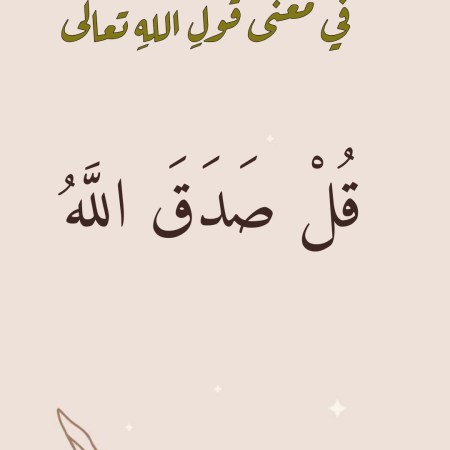 في معنى قولِ اللهِ تعالى
قُلْ صَدَقَ اللَّهُ